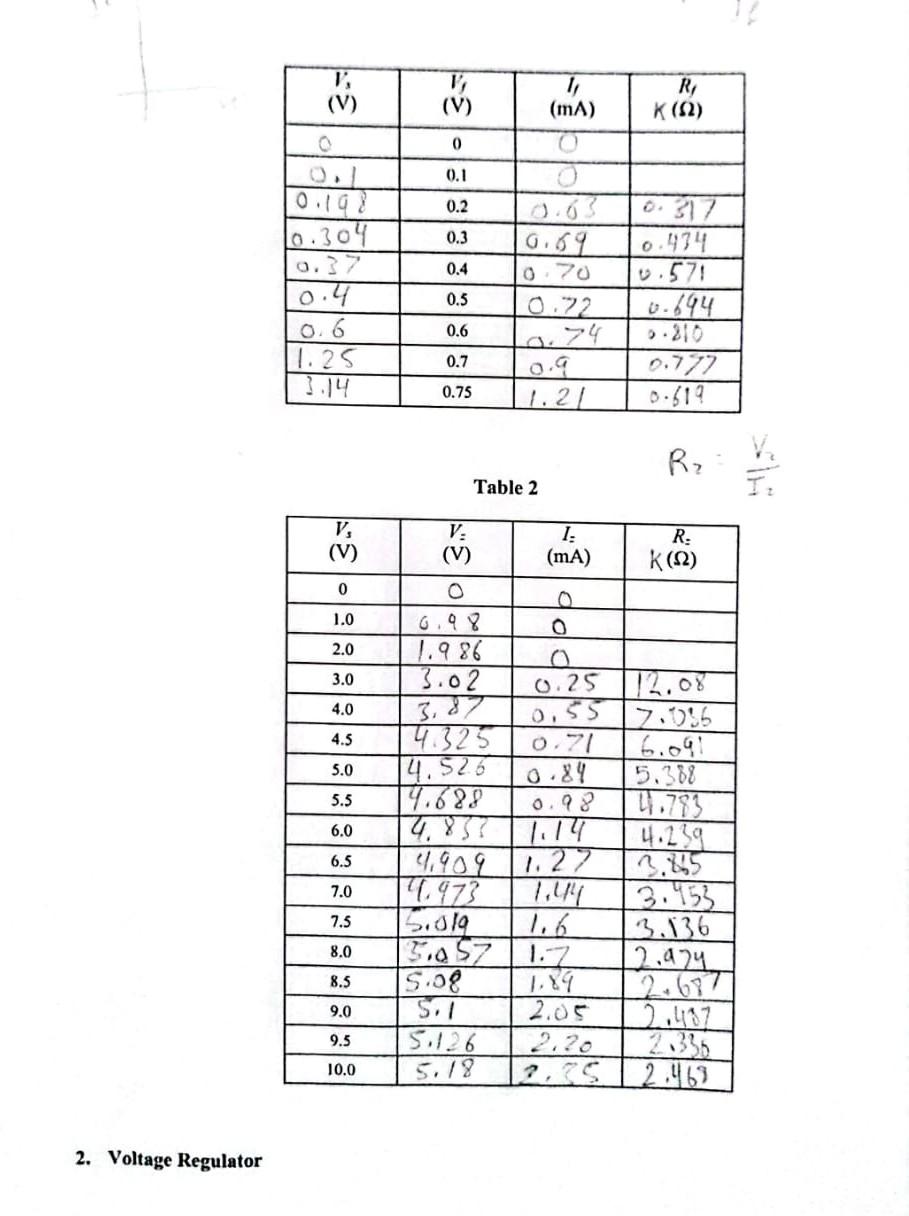 Vs Vf If Rf
(V) (V) (mA) K (Ω)
0 0 0
0.1 0.1 0
0.198 0.2 0.63 0.317
0.304 0.3 0.69 0.434
0.37 0.4 0.70 0.571
0.4 0.5 0.72 0.694
0.6 0.6 0.74 0.810
1.25 0.7 0.9 0.777
3.14 0.75 1.21 0.619
Rz = Vz / Iz
Table 2
Vs Vz Iz Rz
(V) (V) (mA) K (Ω)
0 0 0
1.0 0.98 0
2.0 1.986 0
3.0 3.02 0.25 12.08
4.0 3.87 0.55 7.036
4.5 4.325 0.71 6.091
5.0 4.526 0.84 5.388
5.5 4.688 0.98 4.783
6.0 1.14 4.239
6.5 4.909 1.27 3.865
7.0 4.973 1.44 3.453
7.5 5.019 1.6 3.136
8.0 5.057 1.7 2.974
8.5 5.08 1.89 2.687
9.0 5.1 2.05 2.487
9.5 5.126 2.20 2.336
10.0 5.18 2.35
2. Voltage Regulator